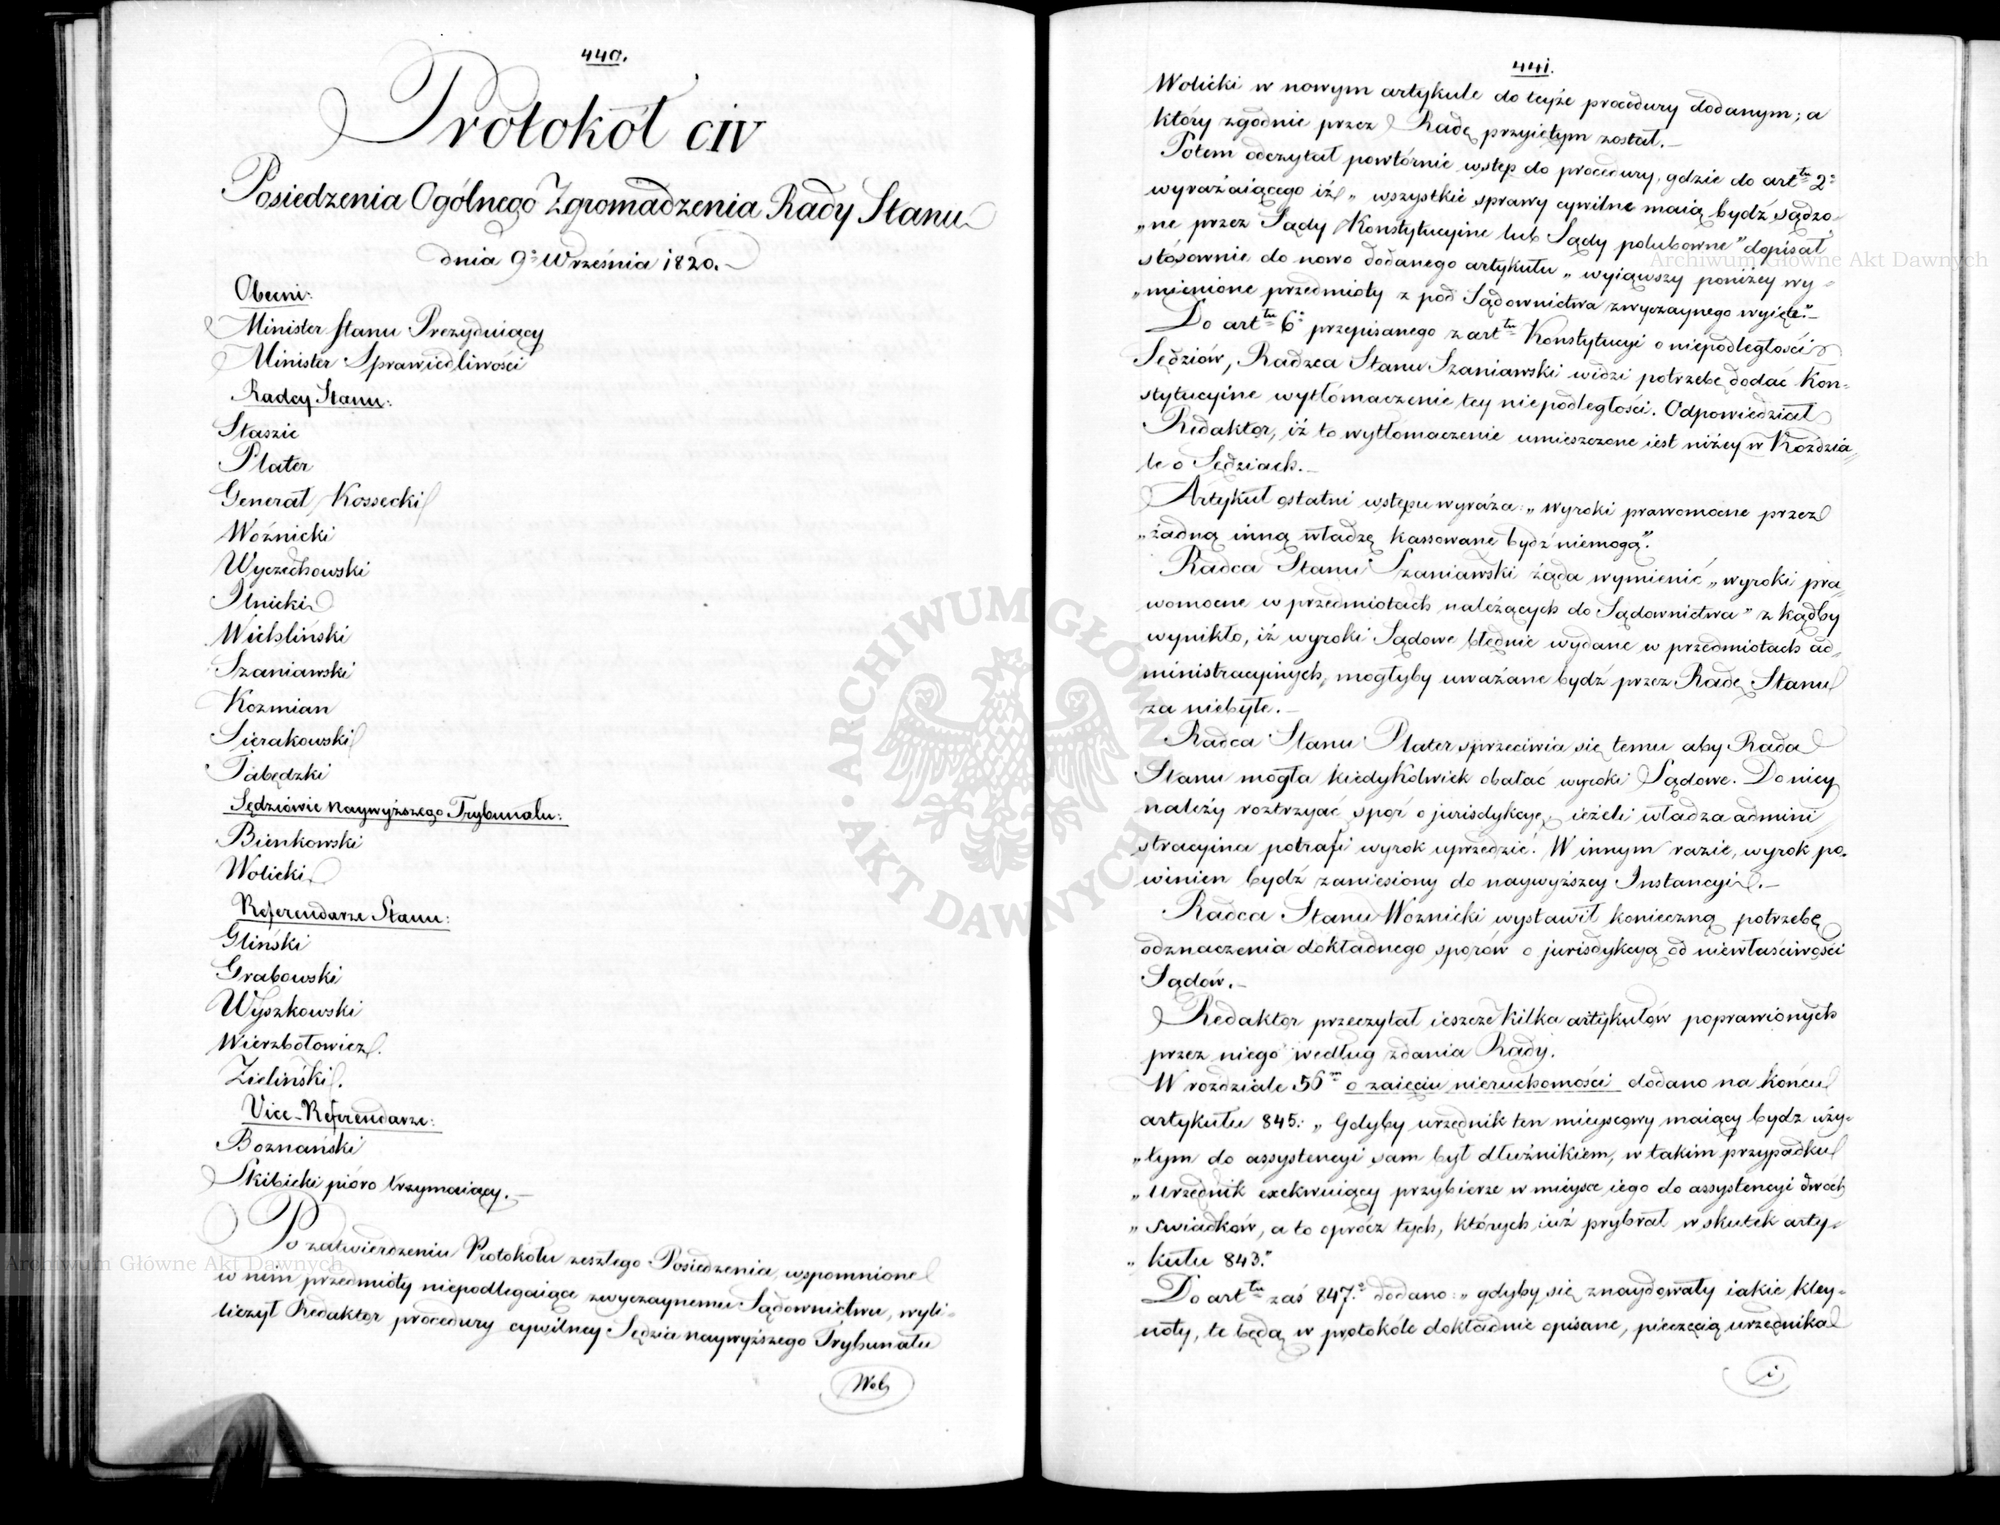 440.
Protokół CIV
Posiedzenia Ogólnego Zgromadzenia Rady Stanu
dnia 9º Września 1820.
Obecni:
Minister Stanu Prezyduiący
Minister Sprawiedliwości
Radcy Stanu:
Staszic
Plater
Generał Kossecki
Woźnicki
Wyczechowski
Ilnicki
Wielsliński
Szaniawski
Kozmian
Sierakowski
Tabędzki
Sędziowie Naywyższego Trybunału:
Bienkowski
Wolicki
Referendarze Stanu:
Gliński
Grabowski
Wyszkowski
Wierzbołowicz.
Zieliński.
Vice-Referendarze:
Boznański
Skibicki pióro trzymaiący.
Po zatwierdzeniu Protokółu zeszłego Posiedzenia, wspomnione
w nim przedmioty niepodlegaiące zwyczaynemu Sądownictwu, wyli-
liczył Redaktor procedury cywilney Sędzia naywyższego Trybunału
Wol
441.
Wolicki w nowym artykule do teyże procedury dodanym; a
który zgodnie przez Radę przyiętym został.
Potem odczytał powtórnie wstęp do procedury, gdzie do art.tu 2º
wyrażaiącego iż „ wszystkie sprawy cywilne maią bydź sądzo-
„ne przez Sądy Konstytucyine lub Sądy polubowne" dopisał
stósownie do nowo dodanego artykułu „ wyiąwszy poniżey wy-
„mienione przedmioty z pod Sądownictwa zwyczaynego wyięte."
Do art.tu 6º przepisanego z art.tu Konstytucyi o niepodległości
Sędziów, Radzca Stanu Szaniawski widzi potrzebę dodać Kon-
stytucyine wytłómaczenie tey niepodległości. Odpowiedział
Redaktor, iż to wytłomaczenie umieszczone iest niżey w Rozdzia-
le o Sędziach.
Artykuł ostatni wstępu wyraża: „ wyroki prawomocne przez
„żadną inną władzę kassowane bydź niemogą".
Radca Stanu Szaniawski żąda wymienić „ wyroki pra-
womocne w przedmiotach należących do Sądownictwa" z kądby
wynikło, iż wyroki Sądowe błędnie wydane w przedmiotach ad-
ministracyinych, mogłyby uważane bydź przez Radę Stanu
za niebyłe.
Radca Stanu Plater sprzeciwia się temu aby Rada
Stanu mogła kiedykolwiek obalać wyroki Sądowe. Do niey
należy roztrzygać spór o jurisdykcyę, ieżeli władza admini
stracyina potrafi wyrok uprzedzić. W innym razie, wyrok po-
winien bydź zaniesiony do naywyższey Instancyi.
Radca Stanu Woznicki wystawił konieczną potrzebę
odznaczenia dokładnego sporów o jurisdykcyą od niewłaściwości
Sądów.
Redaktor przeczytał ieszcze kilka artykułów poprawionych
przez niego według zdania Rady.
W rozdziale 56m o zaięciu nieruchomości dodano na końcu
artykułu 845: „ Gdyby urzędnik ten mieyscowy maiący bydz uży-
„tym do assystencyi sam był dłużnikiem, w takim przypadku
„ Urzędnik exekwuiący przybierze w mieysce iego do assystencyi dwóch
„ swiadków, a to oprócz tych, których iuż przybrał w skutek arty-
„ kułu 843."
Do art.tu zaś 847º dodano: „ gdyby się znaydowały iakie kley-
noty, te będą w protokóle dokładnie opisane, pieczęcią urzędnika
i
ARCHIWUM GŁÓWNE AKT DAWNYCH
Archiwum Główne Akt Dawnych
Archiwum Główne Akt Dawnych